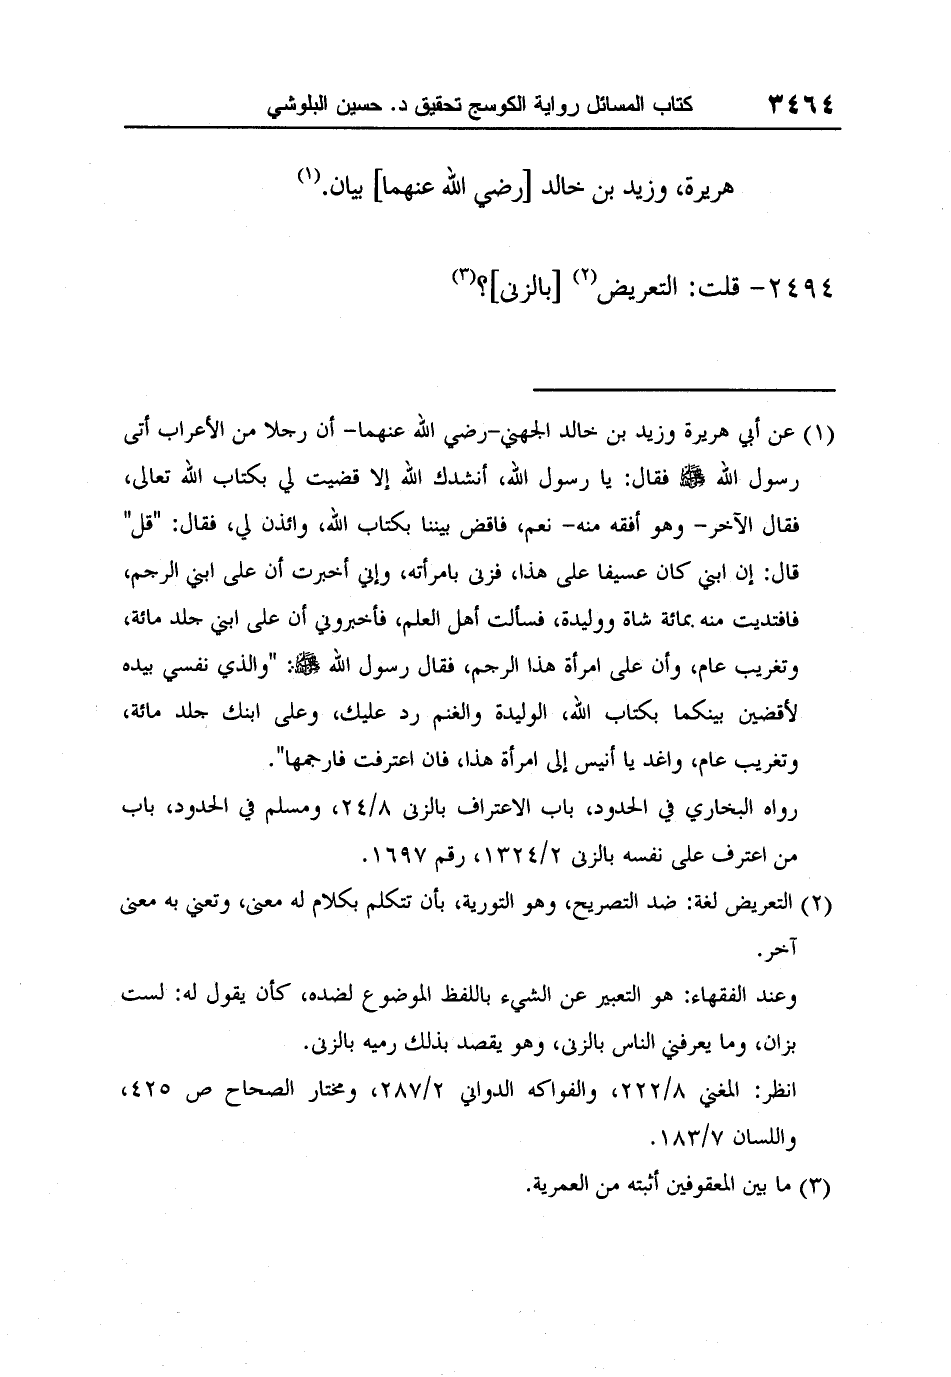 ٣٤٦٤ كتاب المسائل رواية الكوسج تحقيق د. حسين البلوشي
هريرة، وزيد بن خالد [رضي الله عنهما] بيان.(١)
٢٤٩٤- قلت: التعريض(٢) [بالزنى]؟(٣)
(١) عن أبي هريرة وزيد بن خالد الجهني-رضي الله عنهما- أن رجلا من الأعراب أتى
رسول الله ﷺ فقال: يا رسول الله، أنشدك الله إلا قضيت لي بكتاب الله تعالى،
فقال الآخر- وهو أفقه منه- نعم، فاقض بيننا بكتاب الله، وائذن لي، فقال: "قل"
قال: إن ابني كان عسيفا على هذا، فزنى بامرأته، وإني أخبرت أن على ابني الرجم،
فافتديت منه بمائة شاة ووليدة، فسألت أهل العلم، فأخبروني أن على ابني جلد مائة،
وتغريب عام، وأن على امرأة هذا الرجم، فقال رسول الله ﷺ: "والذي نفسي بيده
لأقضين بينكما بكتاب الله، الوليدة والغنم رد عليك، وعلى ابنك جلد مائة،
وتغريب عام، واغد يا أنيس إلى امرأة هذا، فان اعترفت فارجمها".
رواه البخاري في الحدود، باب الاعتراف بالزنى ٢٤/٨، ومسلم في الحدود، باب
من اعترف على نفسه بالزنى ١٣٢٤/٢، رقم ١٦٩٧.
(٢) التعريض لغة: ضد التصريح، وهو التورية، بأن تتكلم بكلام له معنى، وتعني به معنى
آخر.
وعند الفقهاء: هو التعبير عن الشيء باللفظ الموضوع لضده، كأن يقول له: لست
بزان، وما يعرفني الناس بالزنى، وهو يقصد بذلك رميه بالزنى.
انظر: المغني ٢٢٢/٨، والفواكه الدواني ٢٨٧/٢، ومختار الصحاح ص ٤٢٥،
واللسان ١٨٣/٧.
(٣) ما بين المعقوفين أثبته من العمرية.